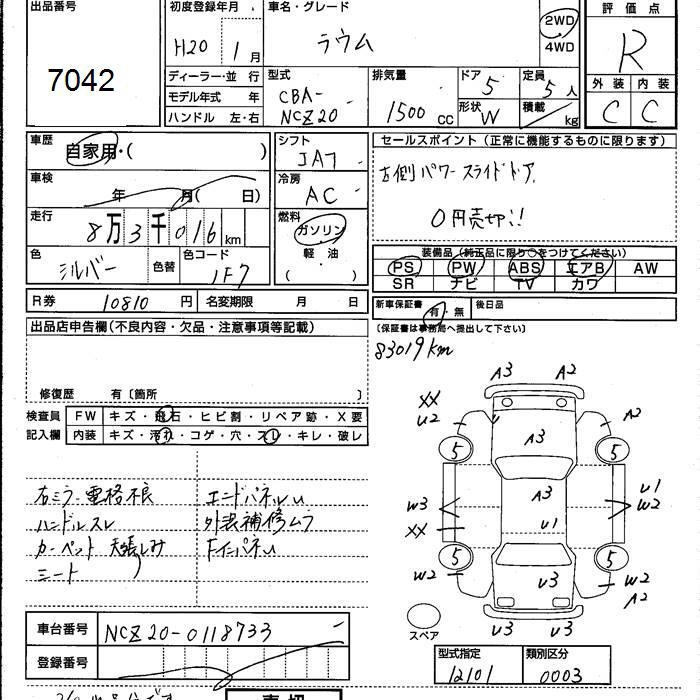 出品番号
7042
初度登録年月
H20 1月
車名・グレード
ラウム
2WD
4WD
評価点
R
外装 内装
C C
ディーラー・並行
モデル年式 年
ハンドル 左・右
型式
CBA-
NCZ20
排気量
1500 cc
ドア 5
形状 W
定員
5人
積載
kg
車歴
自家用・( )
車検
年 月( 日)
走行
8万3千016km
色
シルバー
色替
色コード
1F7
シフト
IA7
冷房
AC
燃料
ガソリン
軽油
( )
セールスポイント(正常に機能するものに限ります)
左側パワースライドドア.
0円売切!!
装備品(純正品に限り○をつけてください)
PS PW ABS エアB AW
SR ナビ TV カワ
R券 10810円 名変期限 月 日
新車保証書 有・無 後日品
(保証書は事務局へ提出して下さい)
83019km
出品店申告欄(不良内容・欠品・注意事項等記載)
修復歴 有〔箇所 〕
検査員 FW キズ・飛石・ヒビ割・リペア跡・X要
記入欄 内装 キズ・汚れ・コゲ・穴・スレ・キレ・破レ
右ミラー電格不良
ハンドルスレ
カーペット 天張しみ
シート
エンドパネルu
外装補修ムラ
Fインパネu
A3 A2
XX
U2
A2
A3
5 5
A3
W3
XX
U1
U1
W2
5 5
W2
U3
W2
A2
U3 U3
スペア
車台番号 NCZ20-0118733
登録番号
型式指定 類別区分
12101 0003